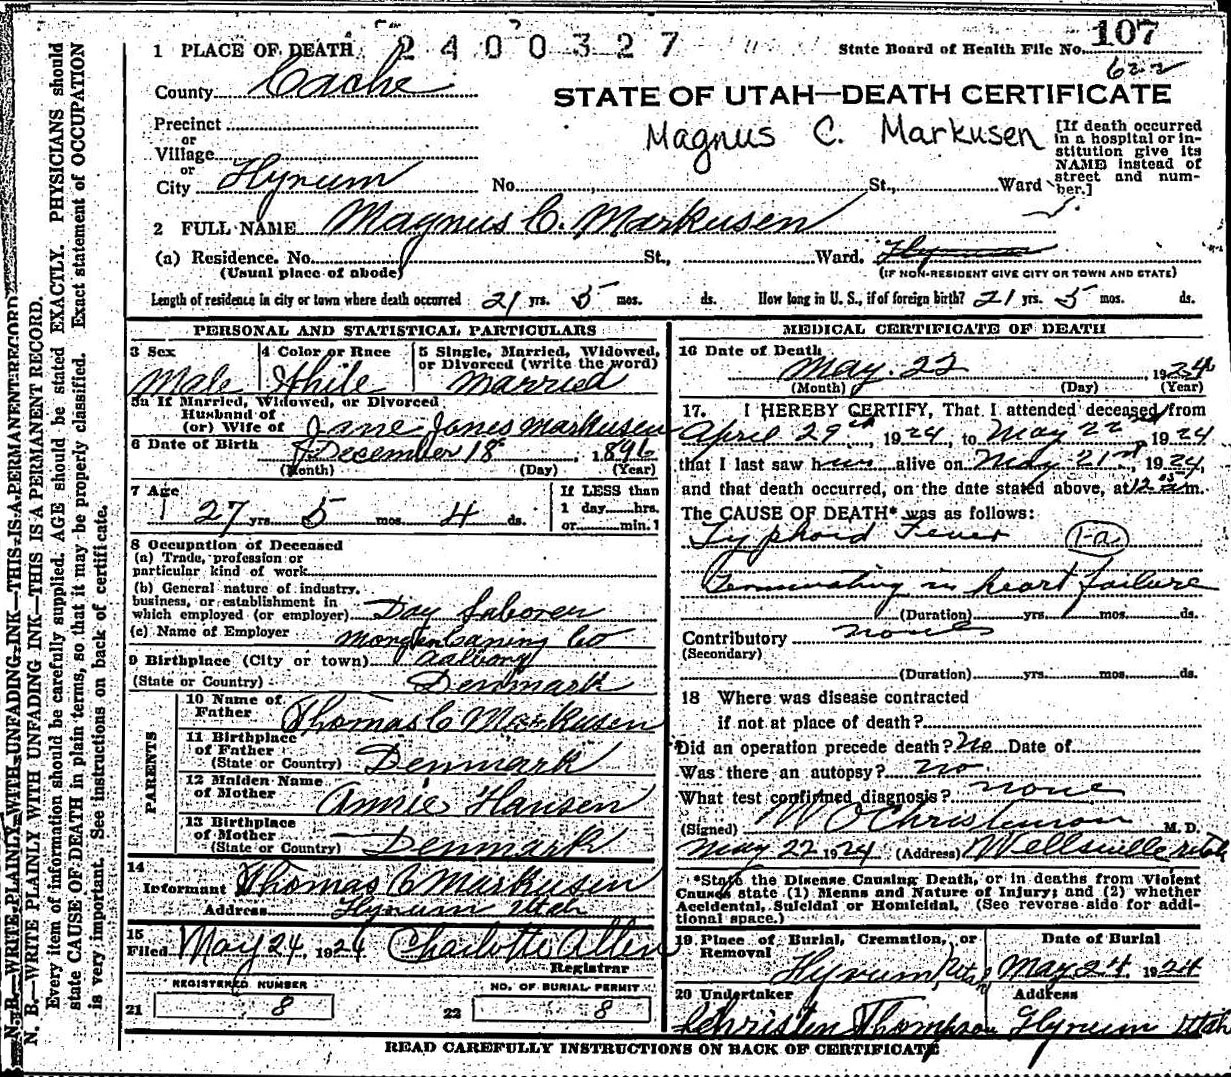 2400327
State Board of Health File No. 107
622
1 PLACE OF DEATH
County Cache
STATE OF UTAH—DEATH CERTIFICATE
Precinct
or
Village
or
City Hyrum No. St., Ward
Magnus C. Markusen
[If death occurred
in a hospital or in-
stitution give its
NAME instead of
street and num-
ber.]
2 FULL NAME Magnus C. Markusen
(a) Residence. No. St., Ward. Hyrum
(Usual place of abode) (IF NON-RESIDENT GIVE CITY OR TOWN AND STATE)
Length of residence in city or town where death occurred 21 yrs. 5 mos. ds. How long in U. S., if of foreign birth? 21 yrs. 5 mos. ds.
PERSONAL AND STATISTICAL PARTICULARS
3 Sex 4 Color or Race 5 Single, Married, Widowed,
or Divorced (write the word)
Male White Married
5a If Married, Widowed, or Divorced
Husband of
(or) Wife of Jane Jones Markusen
6 Date of Birth December 18 1896
(Month) (Day) (Year)
7 Age
27 yrs. 5 mos. 4 ds.
If LESS than
1 day hrs.
or min.
8 Occupation of Deceased
(a) Trade, profession or
particular kind of work
(b) General nature of industry,
business, or establishment in
which employed (or employer) Day Laborer
(c) Name of Employer Morgan Caning Co
9 Birthplace (City or town) Aalborg
(State or Country) Denmark
PARENTS
10 Name of
Father Thomas C Markusen
11 Birthplace
of Father
(State or Country) Denmark
12 Maiden Name
of Mother Annie Hansen
13 Birthplace
of Mother
(State or Country) Denmark
14
Informant Thomas C Markusen
Address Hyrum Utah
15
Filed May 24, 1924 Charlotte Allen
Registrar
REGISTERED NUMBER NO. OF BURIAL PERMIT
21 8 22 8
MEDICAL CERTIFICATE OF DEATH
16 Date of Death
May. 22 1924
(Month) (Day) (Year)
17. I HEREBY CERTIFY, That I attended deceased from
April 29th, 1924, to May 22nd, 1924
that I last saw him alive on May 21st, 1924,
and that death occurred, on the date stated above, at 12 05 a.m.
The CAUSE OF DEATH* was as follows:
Typhoid Fever 1-a
Terminating in heart failure
(Duration) yrs. mos. ds.
Contributory none
(Secondary)
(Duration) yrs. mos. ds.
18 Where was disease contracted
if not at place of death?
Did an operation precede death? No Date of
Was there an autopsy? no
What test confirmed diagnosis? none
(Signed) W O Christenson M. D.
May 22 1924 (Address) Wellsville Utah
*State the Disease Causing Death, or in deaths from Violent
Causes state (1) Means and Nature of Injury; and (2) whether
Accidental, Suicidal or Homicidal. (See reverse side for addi-
tional space.)
19 Place of Burial, Cremation, or
Removal Date of Burial
Hyrum, Utah May 24. 1924
20 Undertaker Address
Christen Thompson Hyrum Utah
READ CAREFULLY INSTRUCTIONS ON BACK OF CERTIFICATE
N. B.—WRITE PLAINLY WITH UNFADING INK—THIS IS A PERMANENT RECORD
N. B.—WRITE PLAINLY WITH UNFADING INK—THIS IS A PERMANENT RECORD.
Every item of information should be carefully supplied. AGE should be stated EXACTLY. PHYSICIANS should
state CAUSE OF DEATH in plain terms, so that it may be properly classified. Exact statement of OCCUPATION
is very important. See instructions on back of certificate.